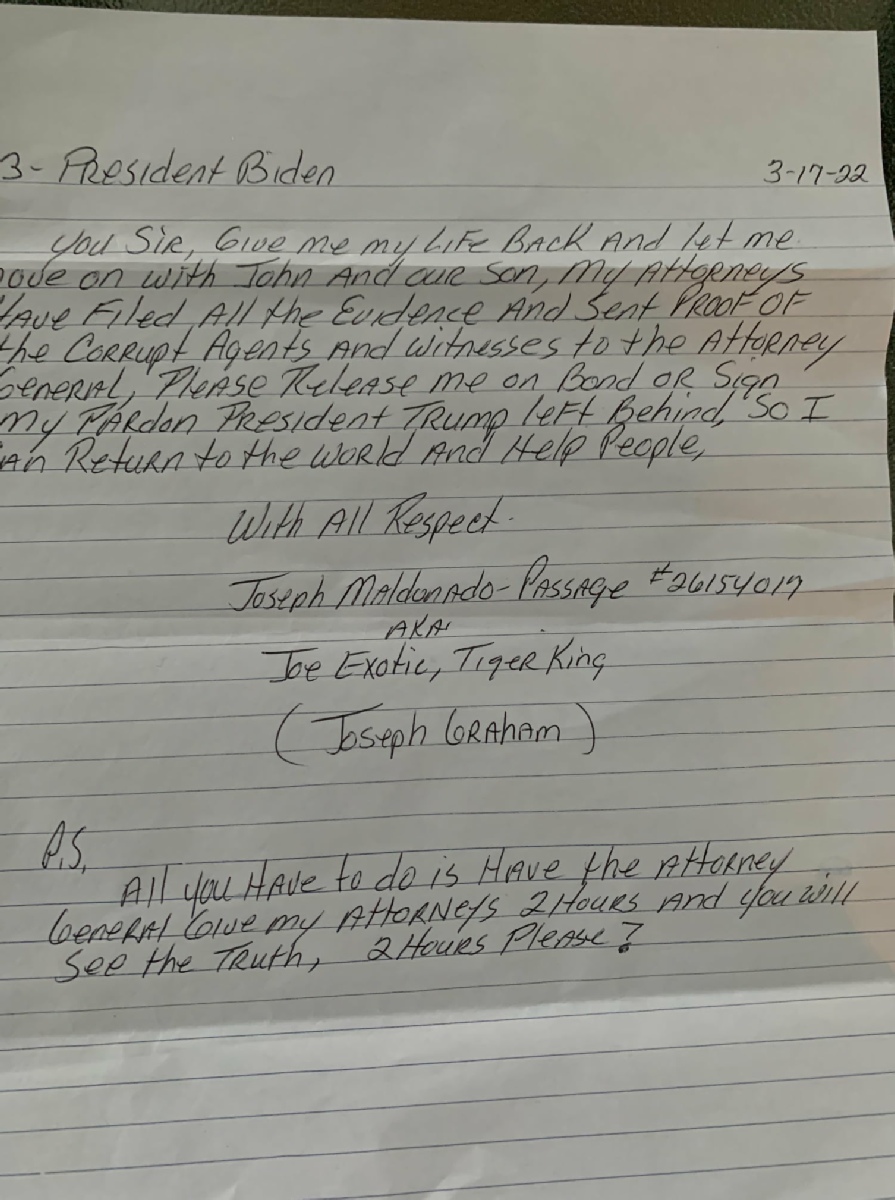 3- President Biden 3-17-22
You Sir, Give me my Life Back And let me
ove on with John And our Son, My Attorneys
Have Filed All the Evidence And Sent PROOF OF
the Corrupt Agents And witnesses to the Attorney
General, Please Release me on Bond or Sign
my Pardon President Trump left Behind, So I
an Return to the World And Help People,
With All Respect.
Joseph Maldonado-Passage #26154017
AKA
Joe Exotic, Tiger King
(Joseph Graham)
P.S,
All you Have to do is Have the Attorney
General Give my Attorneys 2 Hours And you will
See the Truth, 2 Hours Please?